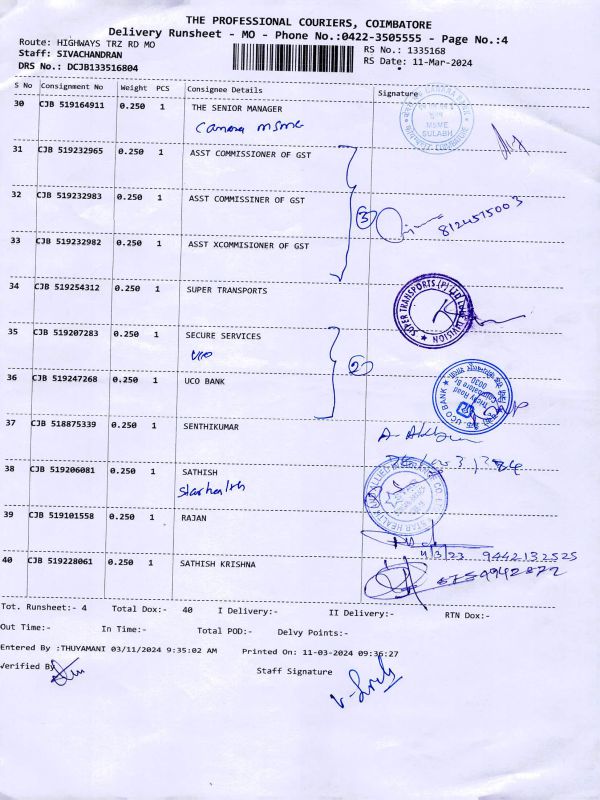 THE PROFESSIONAL COURIERS, COIMBATORE
Delivery Runsheet - MO - Phone No.:0422-3505555 - Page No.:4
Route: HIGHWAYS TRZ RD MO
RS No.: 1335168
Staff: SIVACHANDRAN
RS Date: 11-Mar-2024
DRS No.: DCJB133516804
S No Consignment No Weight PCS Consignee Details Signature
30 CJB 519164911 0.250 1 THE SENIOR MANAGER
Canara MSME
MSME
SULABH
31 CJB 519232965 0.250 1 ASST COMMISSIONER OF GST
32 CJB 519232983 0.250 1 ASST COMMISSINER OF GST
3
8124575003
33 CJB 519232982 0.250 1 ASST XCOMMISIONER OF GST
34 CJB 519254312 0.250 1 SUPER TRANSPORTS
SUPER TRANSPORTS (P) LTD
35 CJB 519207283 0.250 1 SECURE SERVICES
UCO
2
36 CJB 519247268 0.250 1 UCO BANK
UCO BANK
Trichy Road
37 CJB 518875339 0.250 1 SENTHIKUMAR
38 CJB 519206081 0.250 1 SATHISH
Starhealth
STAR HEALTH AND ALLIED INSURANCE CO
39 CJB 519101558 0.250 1 RAJAN
9442132525
40 CJB 519228061 0.250 1 SATHISH KRISHNA
Tot. Runsheet:- 4 Total Dox:- 40 I Delivery:- II Delivery:- RTN Dox:-
Out Time:- In Time:- Total POD:- Delvy Points:-
Entered By :THUYAMANI 03/11/2024 9:35:02 AM Printed On: 11-03-2024 09:36:27
Verified By
Staff Signature